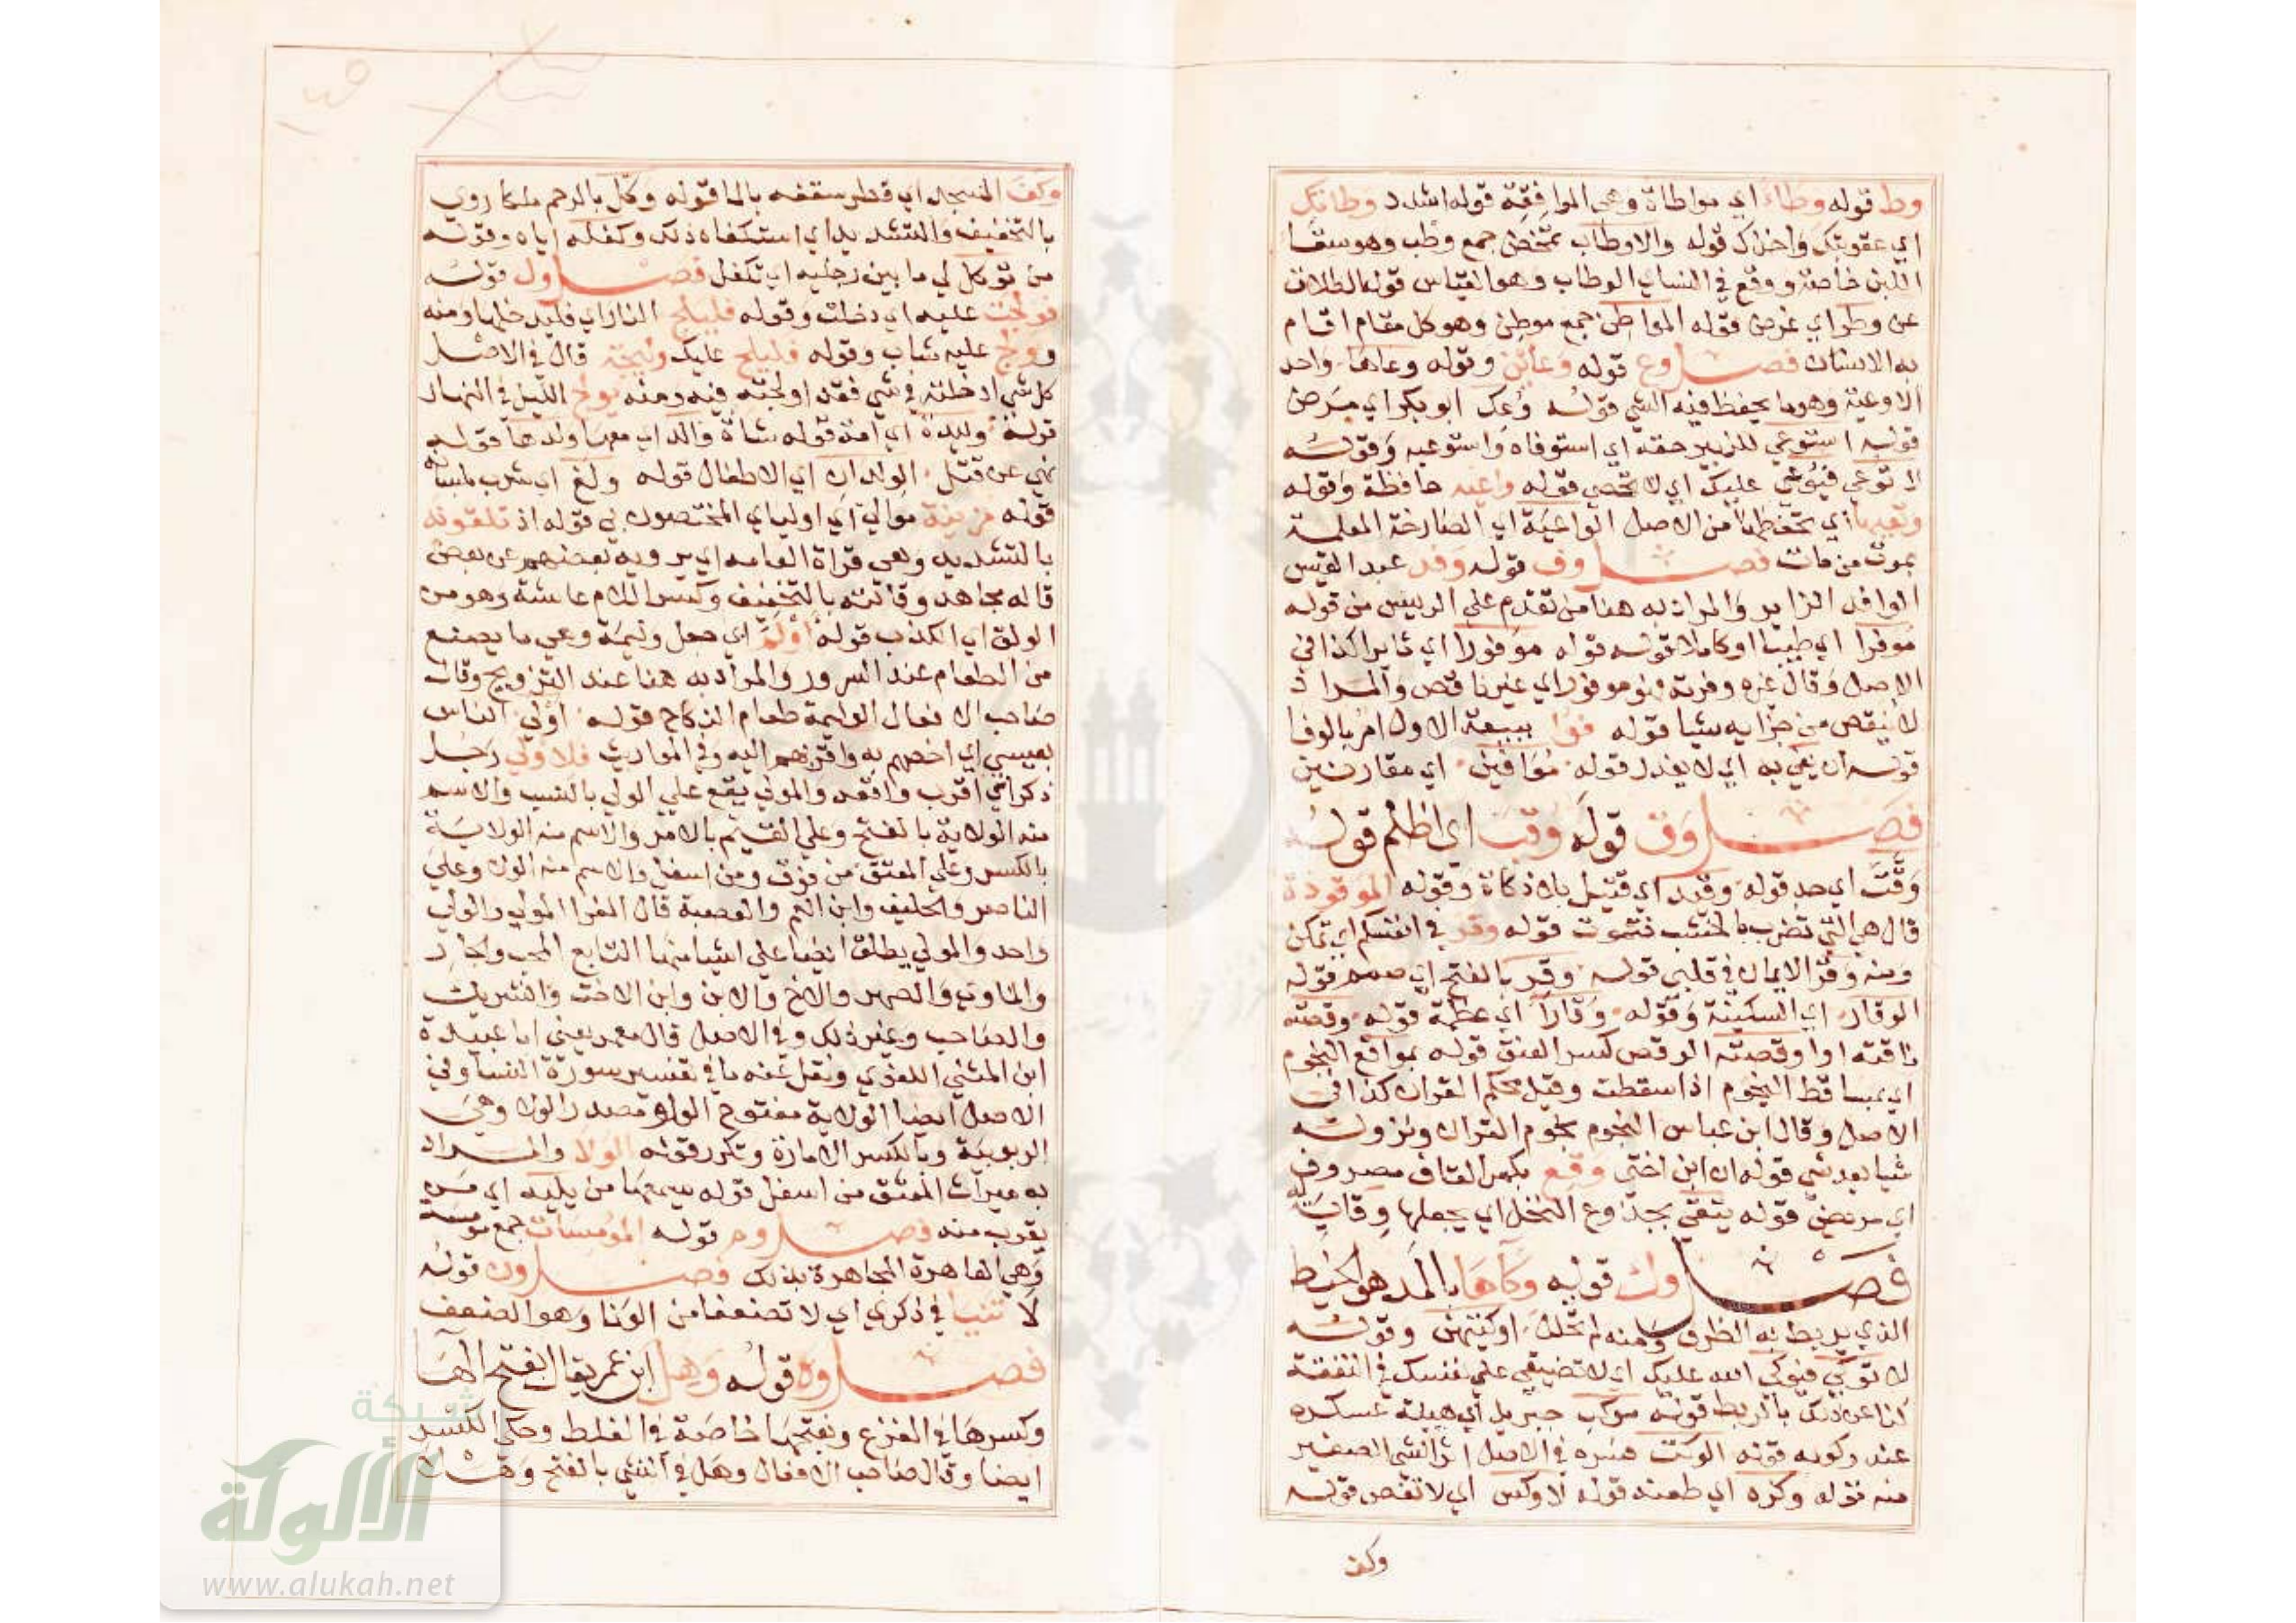 وط قوله وطاء اي مواطاة وهي الموافقة قوله اشدد وطاتك
اي عقوبتك واخذك قوله والاوطاب تمخض جمع وطب وهو سقا
اللبن خاصة ووقع في النساي الوطاب وهو القياس قوله الطلاق
عن وطر اي غرض قوله المواطن جمع موطن وهو كل مقام اقام
به الانسان فصل وع قوله وعائن وقوله وعاهما واحد
الاوعية وهو ما يحفظ فيه الشي قوله وعك ابو بكر اي مرض
قوله استوعي للزبير حقه اي استوفاه واستوعبه وقوله
لا توعي فيوعي عليك اي لا تحصي قوله واعية حافظة وقوله
وتعيها اي تحفظها من الاصل الواعية اي الصارخة المعلمة
بموت من مات فصل وف قوله وفد عبد القيس
الوافد الزاير والمراد به هنا من تقدم علي الرييس من قوله
موفرا اي طيبا او كاملا قوله قوله موفورا اي وافرا كذا في
الاصل وقال غيره وفرته فهو موفور اي غير ناقص والمراد
لا ينقص من جزايه شيا قوله فوا ببيعة الاول امر بالوفا
قوله ان يفي به اي لا يغدر قوله موافين اي مقارنين
فصل وق قوله وقب اي اظلم قوله
وقت اي حد قوله وقيد اي قتيل بلا ذكاة وقوله الموقوذة
قال هي التي تضرب بالخشب فتموت قوله وقر في انفسكم اي تمكن
ومنه وقر الايمان في قلبي قوله وقر بالفتح اي صمم قوله
الوقار اي السكينة وقوله وقارا اي عظمة قوله وقصته
ناقته او اوقصته الوقص كسر العنق قوله بمواقع النجوم
اي بمساقط النجوم اذا سقطت وقيل محكم القران كذا في
الاصل وقال ابن عباس النجوم نجوم القران ونزوله
شيا بعد شي قوله ان ابن اختي وقع بكسر القاف مصروف
اي مريض قوله يتقي بجذوع النخل اي يجعلها وقاية له
فصل وك قوله وكاها بالمد هو الخيط
الذي يربط به الظرف ومنه لم تحلل اوكيتهن وقوله
لا توكي فيوكي الله عليك اي لا تضيقي علي نفسك في النفقة
كنا عن ذلك بالربط قوله موكب جبريل اي هيئة عسكره
عند ركوبه قوله الوكت فسره في الاصل اثر الشي الصغير
منه قوله وكزه اي طعنه قوله لا وكس اي لا نقص قوله
وكف
وكف المسجد اي قطر سقفه بالما قوله وكل بالرحم ملكا روي
بالتخفيف والتشديد اي استكفاه ذلك وكفله اياه وقوله
من توكل لي ما بين رجليه اي تكفل فصل ول قوله
فولجت عليه اي دخلت وقوله فليلج النار اي فليدخلها ومنه
وولج عليه شاب وقوله فليلج عليك وليجة قال في الاصل
كل شي ادخلته في شي فقد اولجته فيه ومنه يولج الليل في النهار
قوله وليدة اي امة قوله شاة والد اي معها ولدها قوله
نهي عن قتل الولدان اي الاطفال قوله ولغ اي شرب بلسانه
قوله مزينة موالي اي اوليای المختصون بي قوله اذ تلقونه
بالتشديد وهي قراة العامة اي يرويه بعضهم عن بعض
قاله مجاهد وقراته بالتخفيف وكسر اللام عايشة وهو من
الولق اي الكذب قوله اولم اي جعل وليمة وهي ما يصنع
من الطعام عند السرور والمراد به هنا عند التزويج وقال
صاحب الافعال الوليمة طعام النكاح قوله اولي الناس
بعيسي اي اخصهم به واقربهم اليه وفي المواريث فلاولي رجل
ذكر اي اقرب واقعد والمولي يقع علي الولي بالنسب والاسم
منه الولاية بالفتح وعلي القيم بالامر والاسم منه الولاية
بالكسر وعلي المعتق من فوق ومن اسفل والاسم منه الولا وعلي
الناصر والحليف وابن العم والعصبة قال الفرا المولي والولي
واحد والمولي يطلق ايضا علي اشيا منها التابع المحب والجار
والماوي والصهر والاخ والابن وابن الاخت والشريك
والصاحب وغير ذلك وفي الاصل قال معمر يعني ابا عبيدة
ابن المثني اللغوي ونقل عنه ما في تفسير سورة النسا وفي
الاصل ايضا الولاية مفتوح الواو مصدر الولا وهي
الربوبية وبالكسر الامارة وتكرر قوله الولا والمراد
به ميراث المعتق من اسفل قوله يسمعها من يليه اي من
يقرب منه فصل وم قوله المومسات جمع مومسة
وهي العاهرة المجاهرة بذلك فصل ون قوله
لا تنيا في ذكري اي لا تضعفا من الونا وهو الضعف
فصل وه قوله وهل ابن عمر يقال بفتح الها
وكسرها في الفزع وبفتحها خاصة في الغلط وحكي الكسر
ايضا وقال صاحب الافعال وهل في الشي بالفتح وهلا
شبكة
الألوكة
www.alukah.net